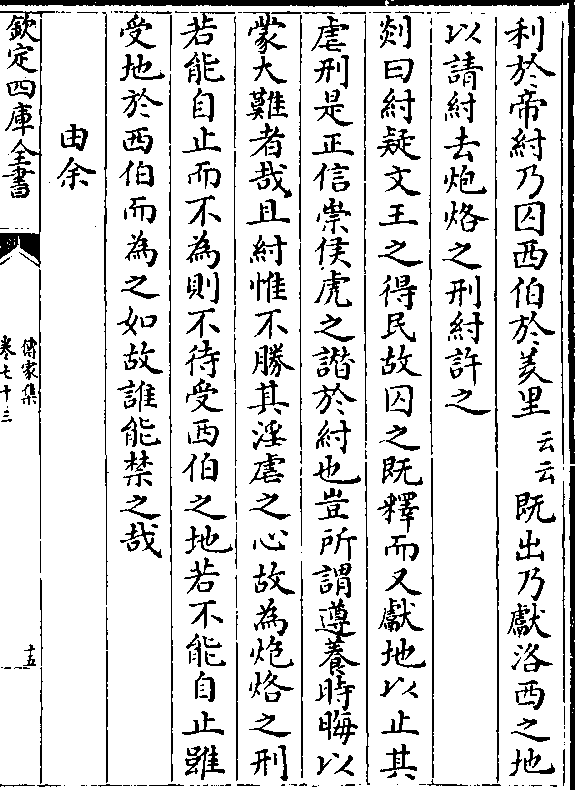 利於帝紂乃囚西伯於羑里云云既出乃獻洛西之地
以請紂去炮烙之刑紂許之
剡曰紂疑文王之得民故囚之既釋而又獻地以止其
虐刑是正信崇侯虎之譖於紂也豈所謂遵養時晦以
蒙大難者哉且紂惟不勝其淫虐之心故為炮烙之刑
若能自止而不為則不待受西伯之地若不能自止雖
受地於西伯而為之如故誰能禁之哉
由余
欽定四庫全書
傳家集
卷七十三
十五